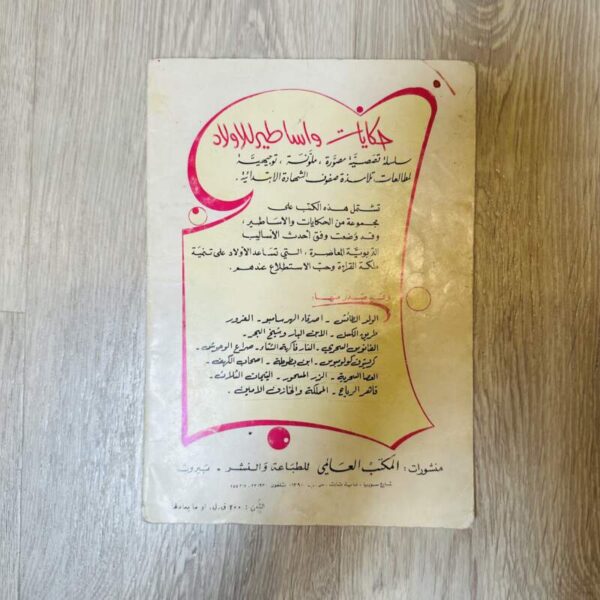 حكايات وأساطير للأولاد
سلسلة قصصية مصورة ، ملونة ، توجيهية
لمطالعات تلامذة صفوف الشهادة الابتدائية .
تشتمل هذه الكتب على
مجموعة من الحكايات والأساطير ،
وقد وضعت وفق أحدث الأساليب
التربوية المعاصرة ، التي تساعد الأولاد على تنمية
ملكة القراءة وحب الاستطلاع عندهم .
وقد صدر منها :
الولد الطائش - أصدقاء الهر سامبو - الغرور
طريق الكسل - الابن البار وشيخ البحر -
الفانوس السحري - النار فاكهة الشتاء - صراع الوحوش -
كريستوف كولومبوس - ابن بطوطة - أصحاب الكهف -
العصا السحرية - الزر المسحور - اليتيمات الثلاث -
قاهر الرياح - المملكة والخازن الأمين .
منشورات : المكتب العالمي للطباعة والنشر - بيروت
شارع سوريا - بناية
الثمن : ٢٠٠ ق.ل. أو ما يعادلها